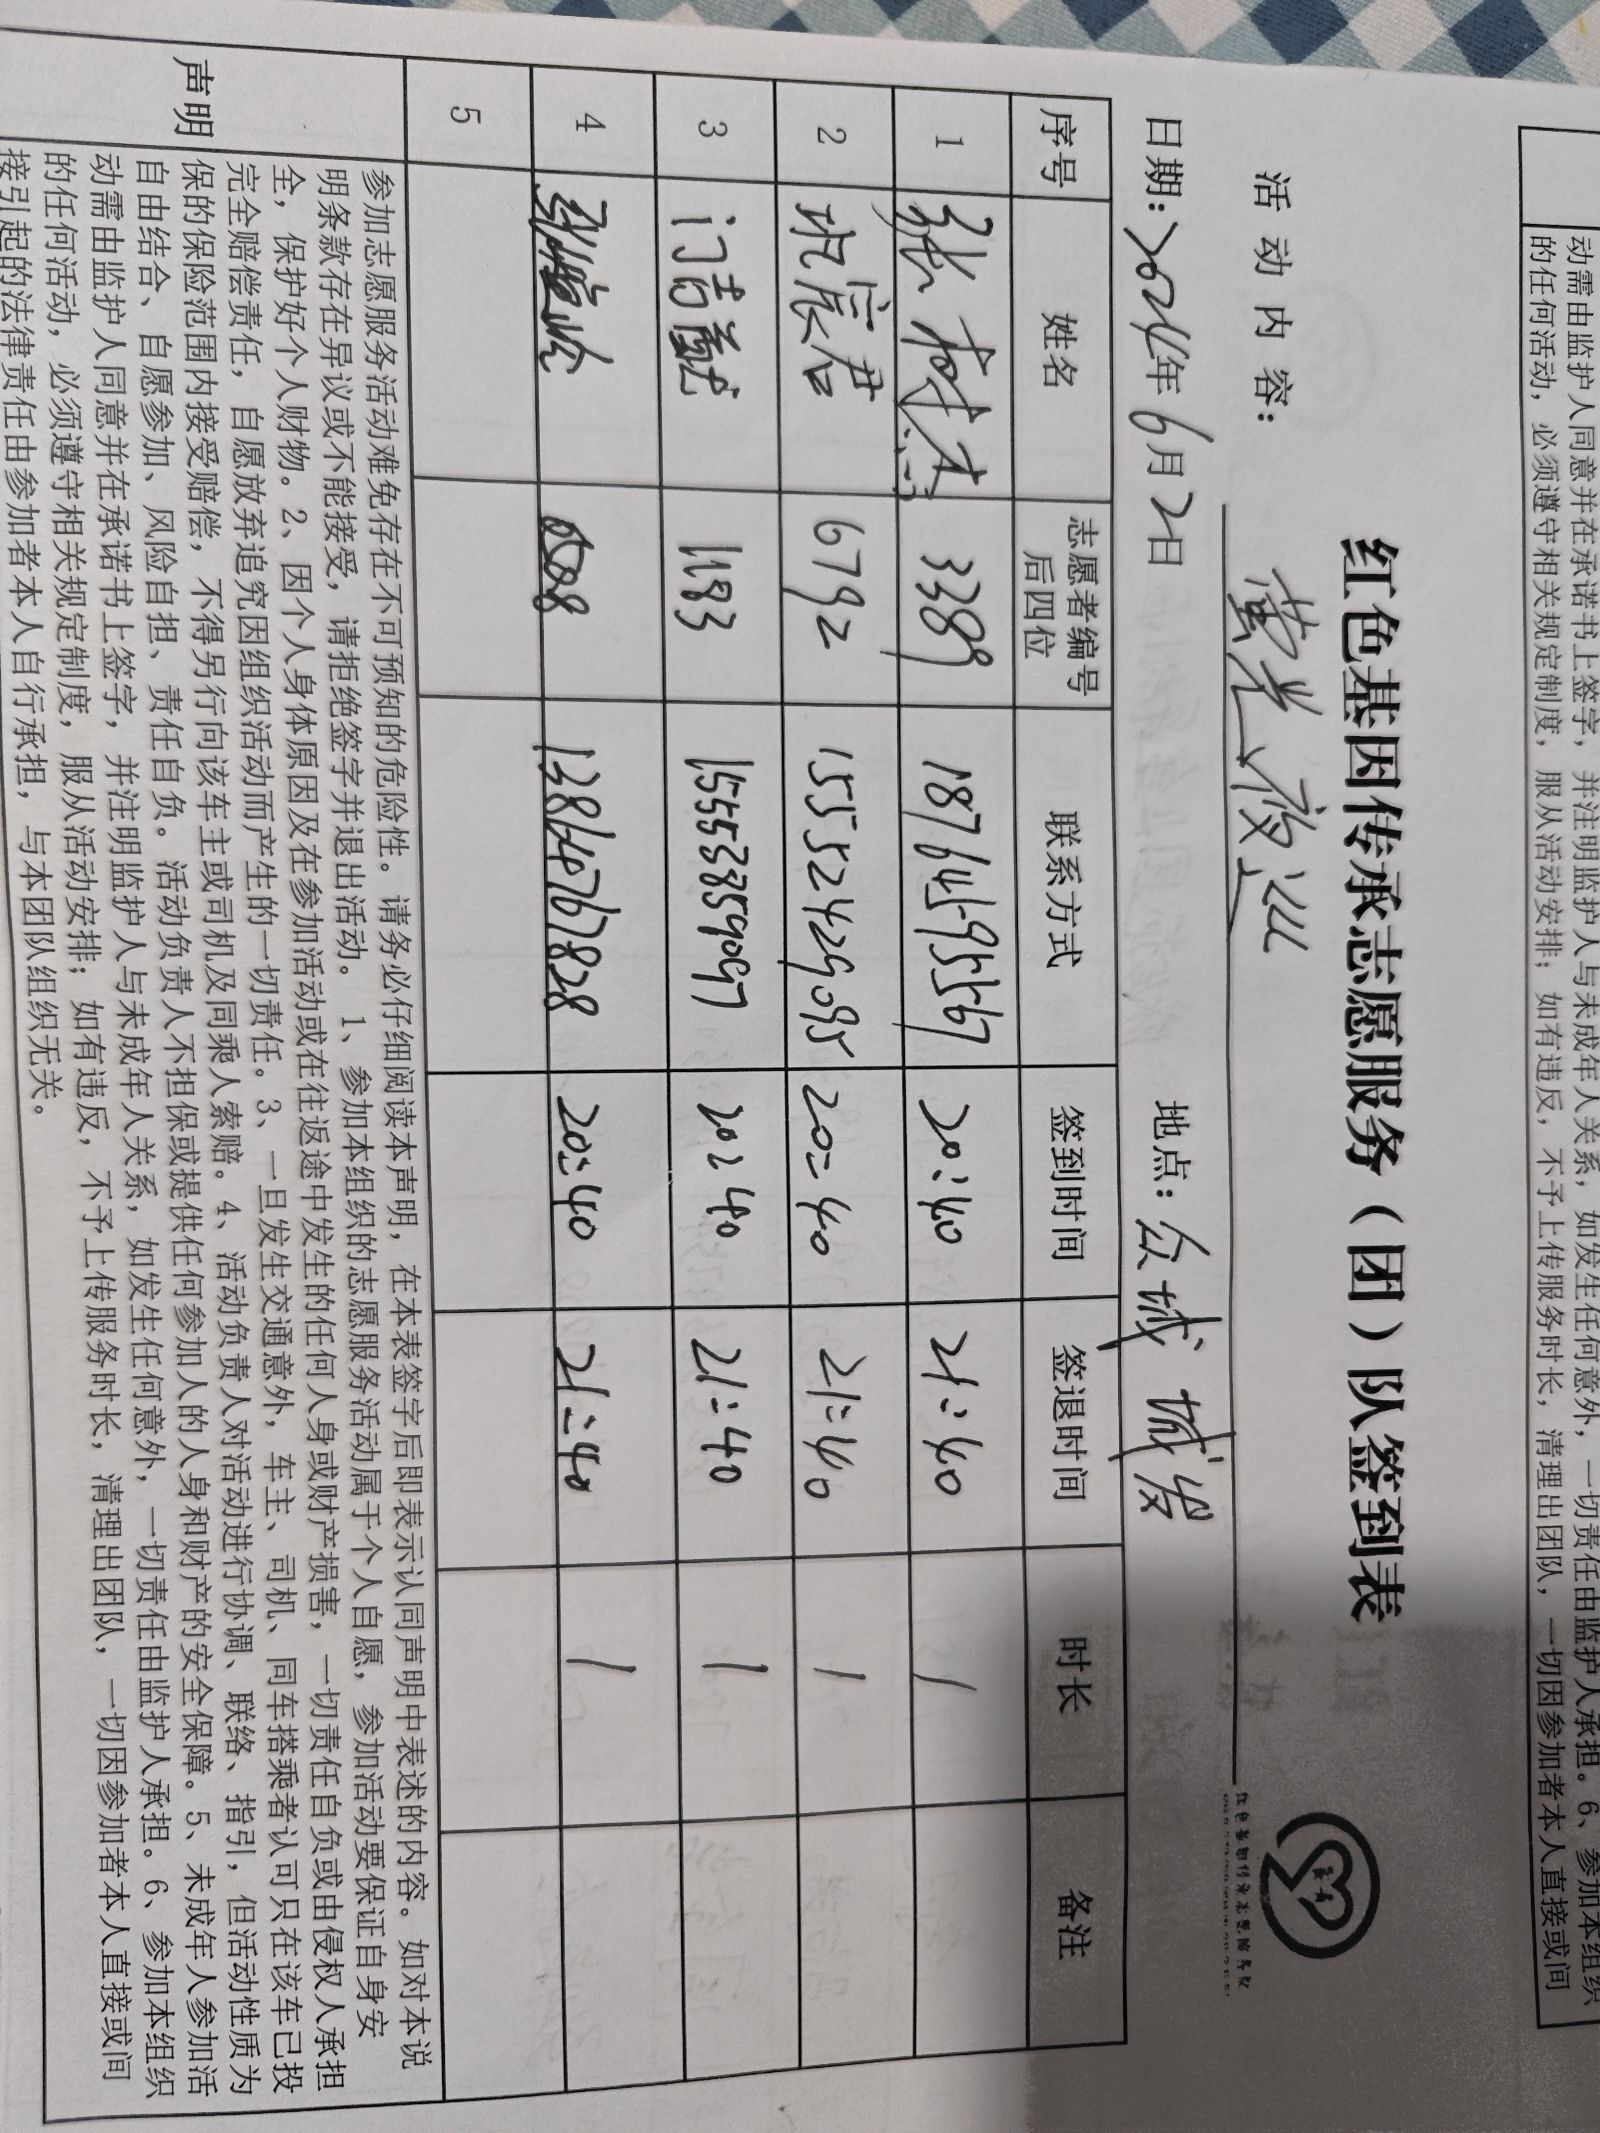 动需由监护人同意并在承诺书上签字，并注明监护人与未成年人关系，如发生任何意外，一切责任由监护人承担。6、参加本组织
的任何活动，必须遵守相关规定制度，服从活动安排；如有违反，不予上传服务时长，清理出团队，一切因参加者本人直接或间
红色基因传承志愿服务（团）队签到表
活动内容： 萤光夜巡
日期：2024年6月2日 地点：众城城发
序号 姓名 志愿者编号后四位 联系方式 签到时间 签退时间 时长 备注
1 张 3389 18764595567 20:40 21:40 1
2 巩宸君 6792 15552429095 20:40 21:40 1
3 门 1183 15553859097 20:40 21:40 1
4 13864767828 20:40 21:40 1
5
声明
参加志愿服务活动难免存在不可预知的危险性。请务必仔细阅读本声明，在本表签字后即表示认同声明中表述的内容。如对本说
明条款存在异议或不能接受，请拒绝签字并退出活动。1、参加本组织的志愿服务活动属于个人自愿，参加活动要保证自身安
全，保护好个人财物。2、因个人身体原因及在参加活动或在往返途中发生的任何人身或财产损害，一切责任自负或由侵权人承担
完全赔偿责任，自愿放弃追究因组织活动而产生的一切责任。3、一旦发生交通意外，车主、司机、同车搭乘者认可只在该车已投
保的保险范围内接受赔偿，不得另行向该车主或司机及同乘人索赔。4、活动负责人对活动进行协调、联络、指引，但活动性质为
自由结合、自愿参加、风险自担、责任自负。活动负责人不担保或提供任何参加人的人身和财产的安全保障。5、未成年人参加活
动需由监护人同意并在承诺书上签字，并注明监护人与未成年人关系，如发生任何意外，一切责任由监护人承担。6、参加本组织
的任何活动，必须遵守相关规定制度，服从活动安排；如有违反，不予上传服务时长，清理出团队，一切因参加者本人直接或间
接引起的法律责任由参加者本人自行承担，与本团队组织无关。